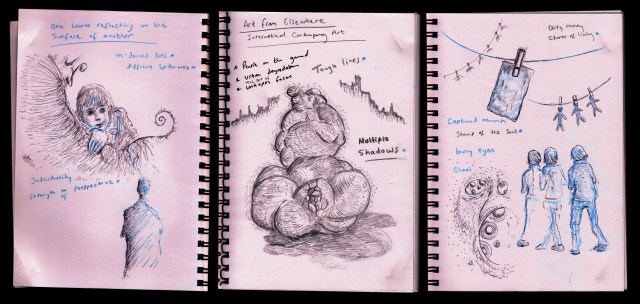 One World reflecting in the
Surface of another
un-Joined dots
different Spiderwebs
Individuality
Strength of Perspective
Art from Elsewhere
International Contemporary Art
People on the ground
Urban degradation
Tough lives
Multiple
Shadows
Dirty money
Chains of living
Captured moment
Stamp of the Soul
busy eyes